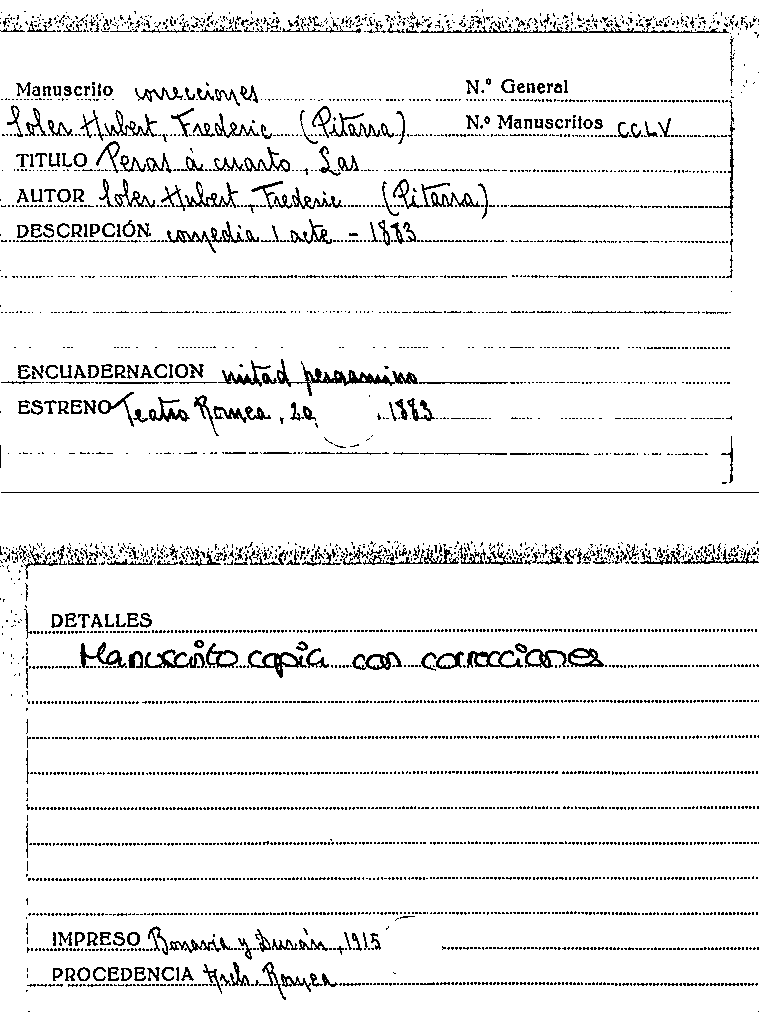 Manuscrito correcciones N.º General
Soler Hubert, Frederic (Pitarra) N.º Manuscritos CCLV
TITULO Peras á cuarto, Las
AUTOR Soler Hubert, Frederic (Pitarra)
DESCRIPCIÓN comedia 1 acte - 1883
ENCUADERNACION mitad pergamino
ESTRENO Teatro Romea, 1883
DETALLES
Manuscrito copia con correcciones
IMPRESO Bonavía y Durán, 1915
PROCEDENCIA Arch. Romea